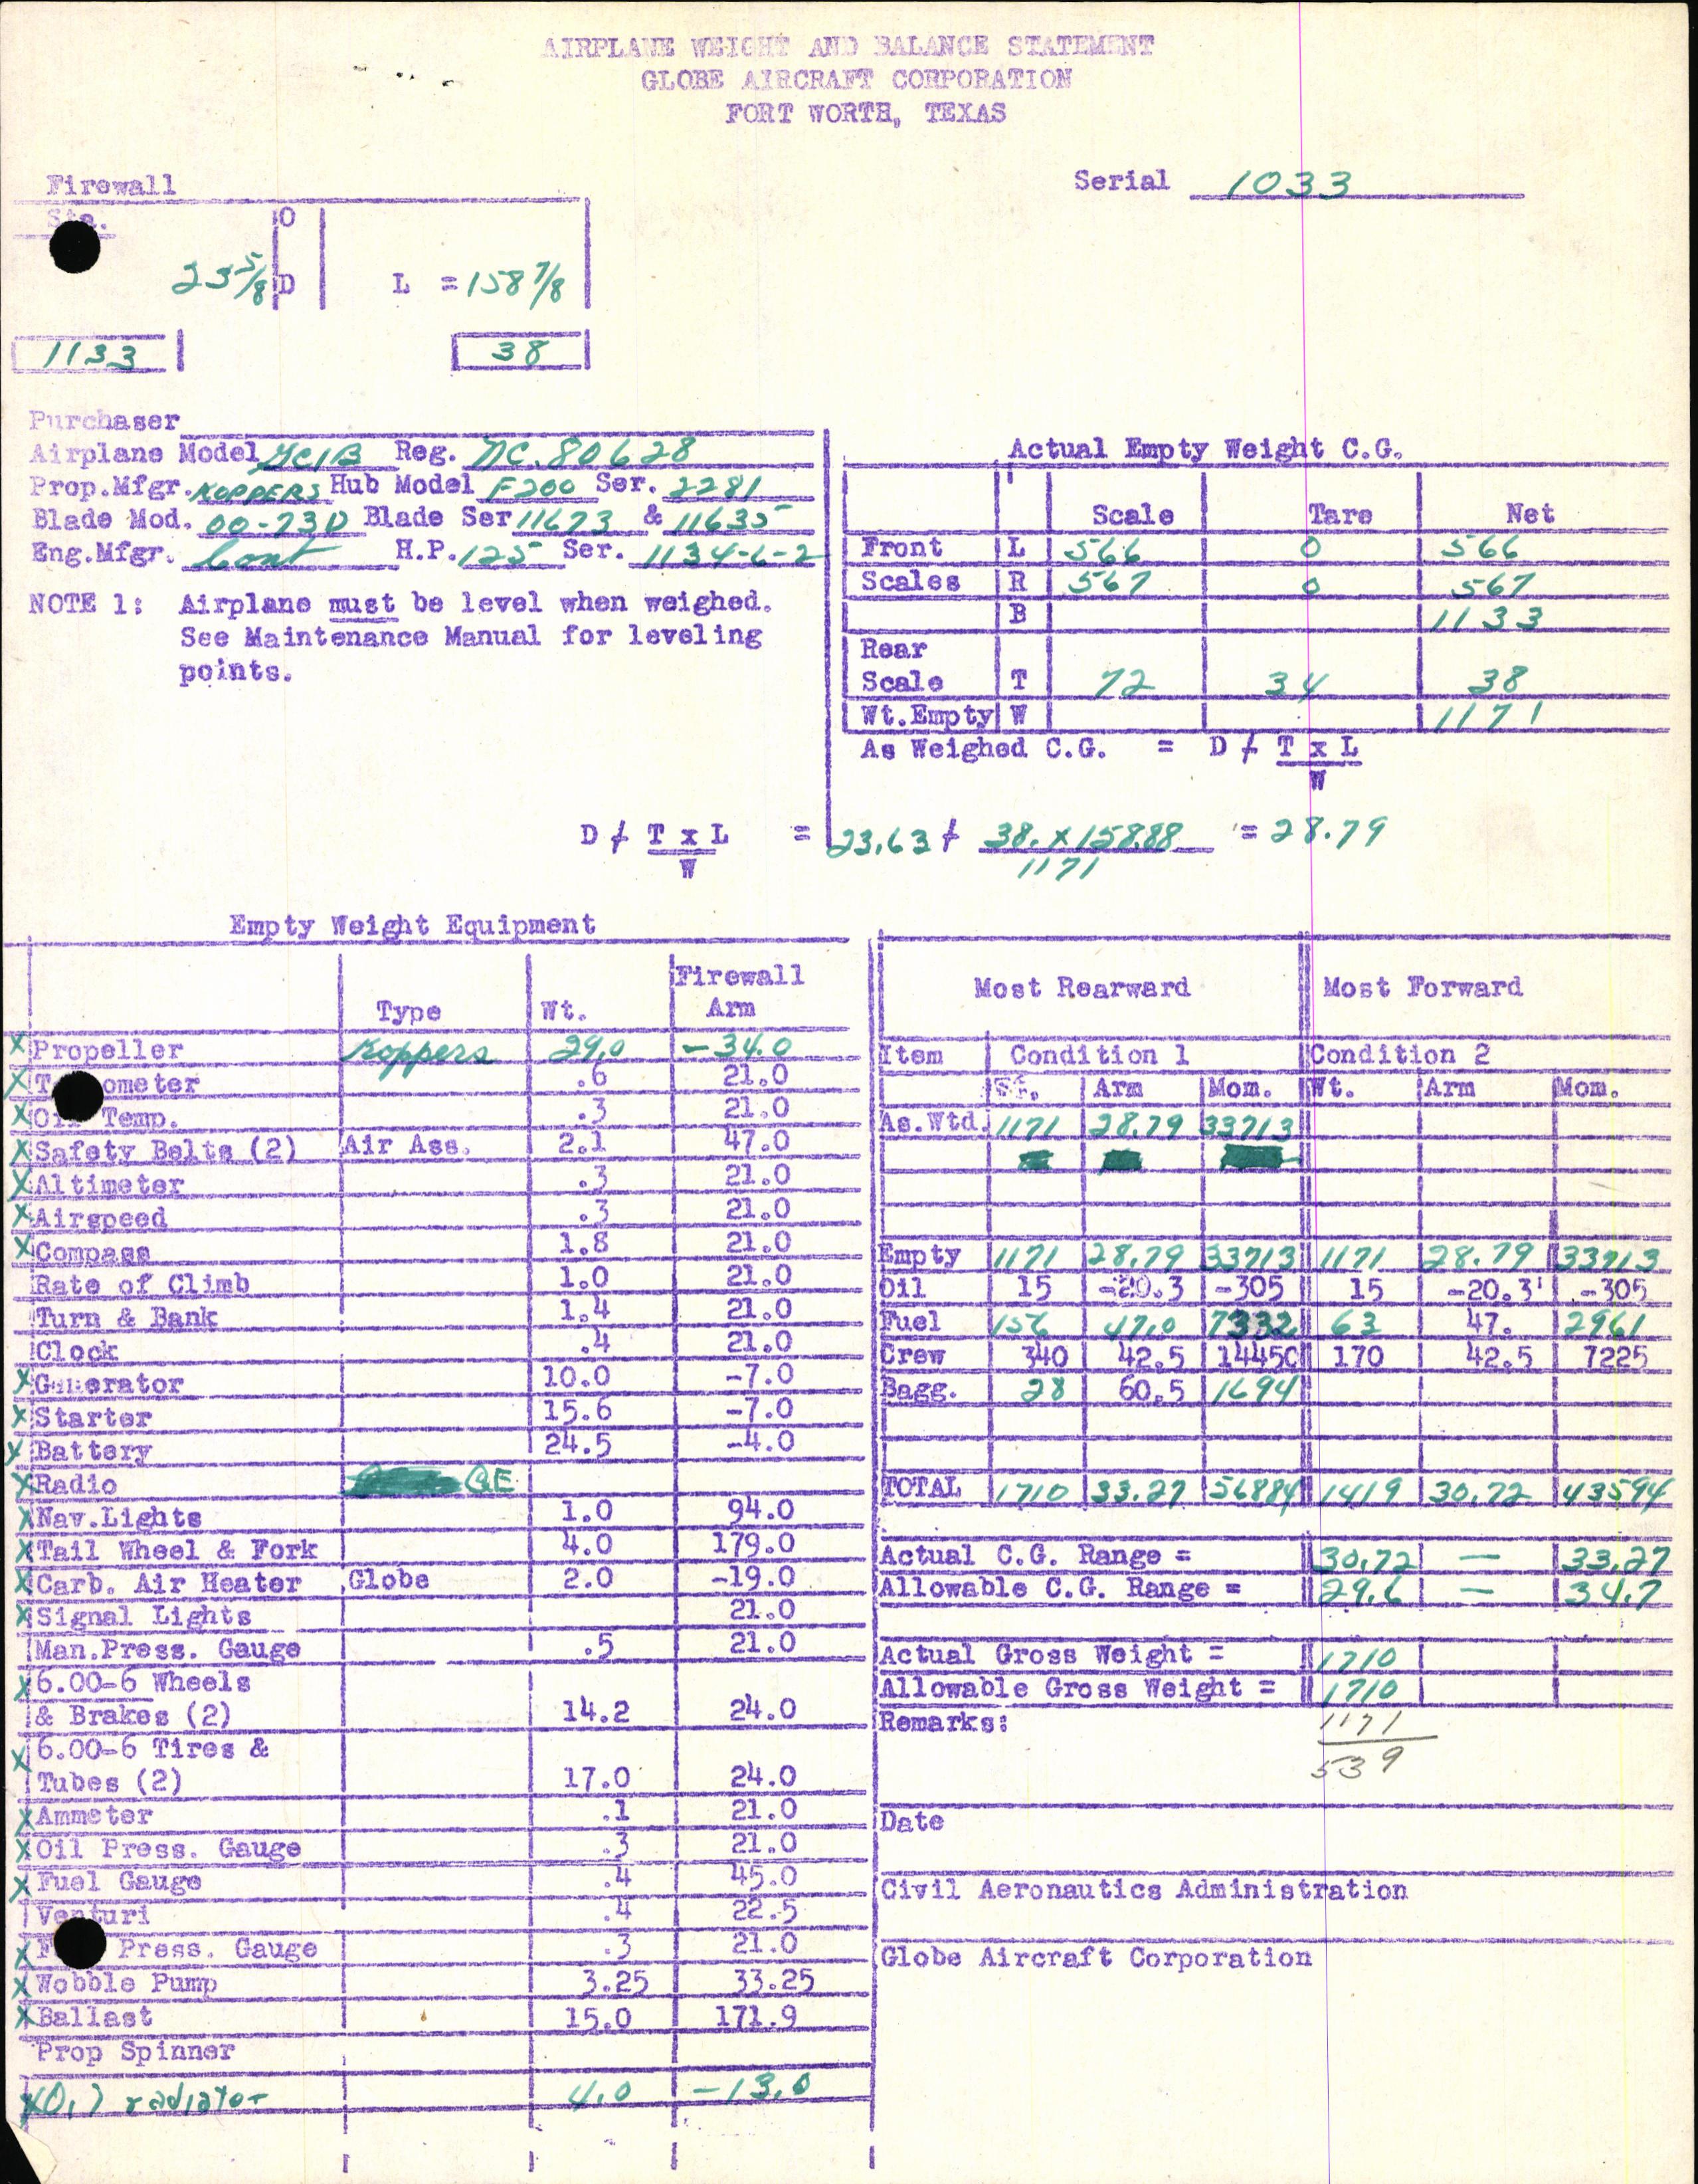 AIRPLANE WEIGHT AND BALANCE STATEMENT
GLOBE AIRCRAFT CORPORATION
FORT WORTH, TEXAS
Serial 1033
Firewall
Sta.
O
23 5/8 D L = 158 7/8
1133 38
Purchaser
Airplane Model GC1B Reg. NC.80628
Prop.Mfgr. KOPPERS Hub Model F200 Ser. 2281
Blade Mod. 00-73D Blade Ser 11673 & 11635
Eng.Mfgr. Cont H.P. 125 Ser. 1134-6-2
NOTE 1: Airplane must be level when weighed.
See Maintenance Manual for leveling
points.
Actual Empty Weight C.G.
Scale Tare Net
Front L 566 0 566
Scales R 567 0 567
B 1133
Rear
Scale T 72 34 38
Wt.Empty W 1171
As Weighed C.G. = D + T x L
W
D + T x L = 23.63 + 38. x 158.88 = 28.79
W 1171
Empty Weight Equipment
Type Wt. Firewall Arm
X Propeller Koppers 29.0 -34.0
X T ometer .6 21.0
X Oil Temp. .3 21.0
X Safety Belts (2) Air Ass. 2.1 47.0
X Altimeter .3 21.0
X Airspeed .3 21.0
X Compass 1.8 21.0
Rate of Climb 1.0 21.0
Turn & Bank 1.4 21.0
Clock .4 21.0
X Generator 10.0 -7.0
X Starter 15.6 -7.0
X Battery 24.5 -4.0
X Radio GE
X Nav.Lights 1.0 94.0
X Tail Wheel & Fork 4.0 179.0
X Carb. Air Heater Globe 2.0 -19.0
X Signal Lights 21.0
Man.Press. Gauge .5 21.0
X 6.00-6 Wheels
& Brakes (2) 14.2 24.0
X 6.00-6 Tires &
Tubes (2) 17.0 24.0
X Ammeter .1 21.0
X Oil Press. Gauge .3 21.0
X Fuel Gauge .4 45.0
Venturi .4 22.5
X F Press. Gauge .3 21.0
X Wobble Pump 3.25 33.25
X Ballast 15.0 171.9
Prop Spinner
X Oil radiator 4.0 -13.0
Most Rearward Most Forward
Item Condition 1 Condition 2
Wt. Arm Mom. Wt. Arm Mom.
As.Wtd. 1171 28.79 33713
Empty 1171 28.79 33713 1171 28.79 33713
Oil 15 -20.3 -305 15 -20.3 -305
Fuel 156 47.0 7332 63 47. 2961
Crew 340 42.5 14450 170 42.5 7225
Bagg. 28 60.5 1694
TOTAL 1710 33.27 56884 1419 30.72 43594
Actual C.G. Range = 30.72 — 33.27
Allowable C.G. Range = 29.6 — 34.7
Actual Gross Weight = 1710
Allowable Gross Weight = 1710
Remarks: 1171
539
Date
Civil Aeronautics Administration
Globe Aircraft Corporation